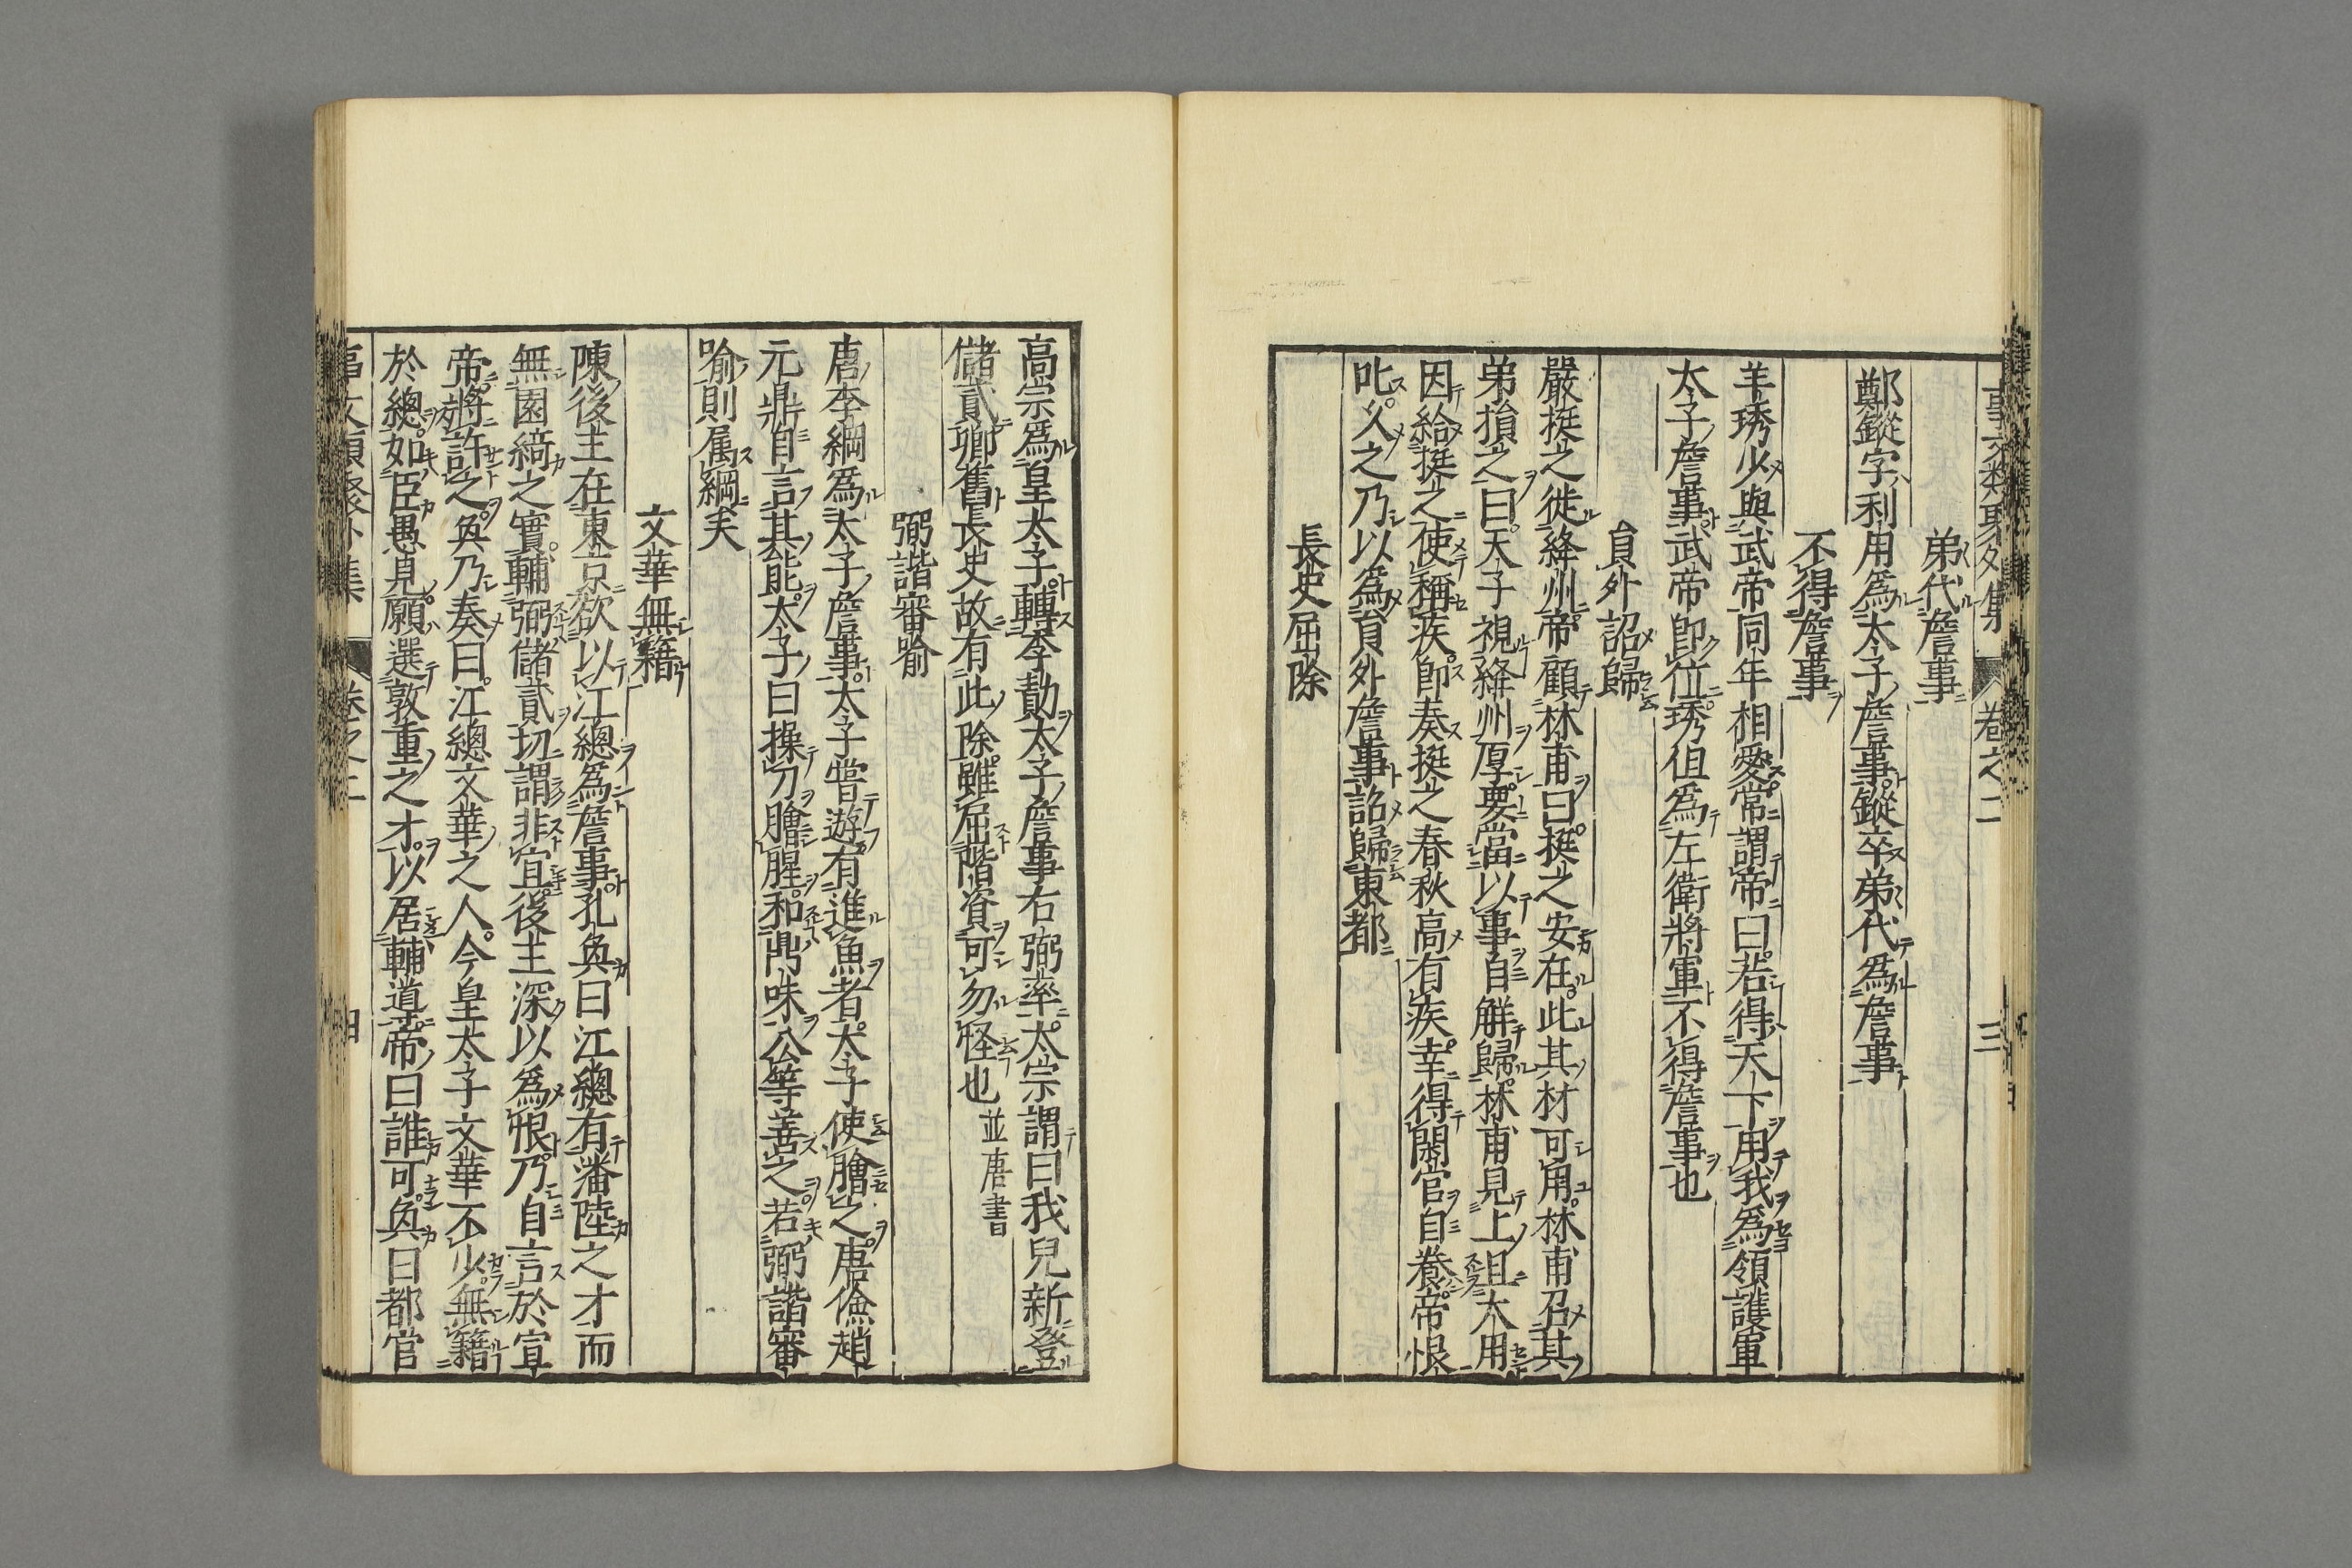 事文類聚外集 卷之二 三
弟代詹事
鄭鏦字利用爲太子詹事鏦卒弟代爲詹事
不得詹事
羊琇少與武帝同年相愛常謂帝曰若得天下用我爲領護軍
太子詹事武帝即位琇但爲左衛將軍不得詹事也
員外詔歸
嚴挺之徙絳州帝顧林甫曰挺之安在此其材可用林甫召其
弟損之曰天子視絳州厚要當以事自觧歸林甫見上且大用
因給挺之使稱疾即奏挺之春秋高有疾幸得閑官自養帝恨
叱久之乃以爲員外詹事詔歸東都
長史屈除
高宗爲皇太子轉李勣太子詹事右弼率太宗謂曰我兒新登
儲貳卿舊長史故有此除雖屈階資可勿怪也並唐書
弼諧審喻
唐李綱爲太子詹事太子嘗遊有進魚者太子使膾之唐儉趙
元鼎自言其能太子曰操刀膾腥和鼎味公等善之若弼諧審
喻則属綱矣
文華無籍
陳後主在東宮欲以江總爲詹事孔奐曰江總有潘陸之才而
無園綺之實輔弼儲貳切謂非宜後主深以爲恨乃自言於宣
帝將許之奐乃奏曰江總文華之人今皇太子文華不少無籍
於總如臣愚見願選敦重之才以居輔道帝曰誰可奐曰都官
事文類聚外集 卷之二 四